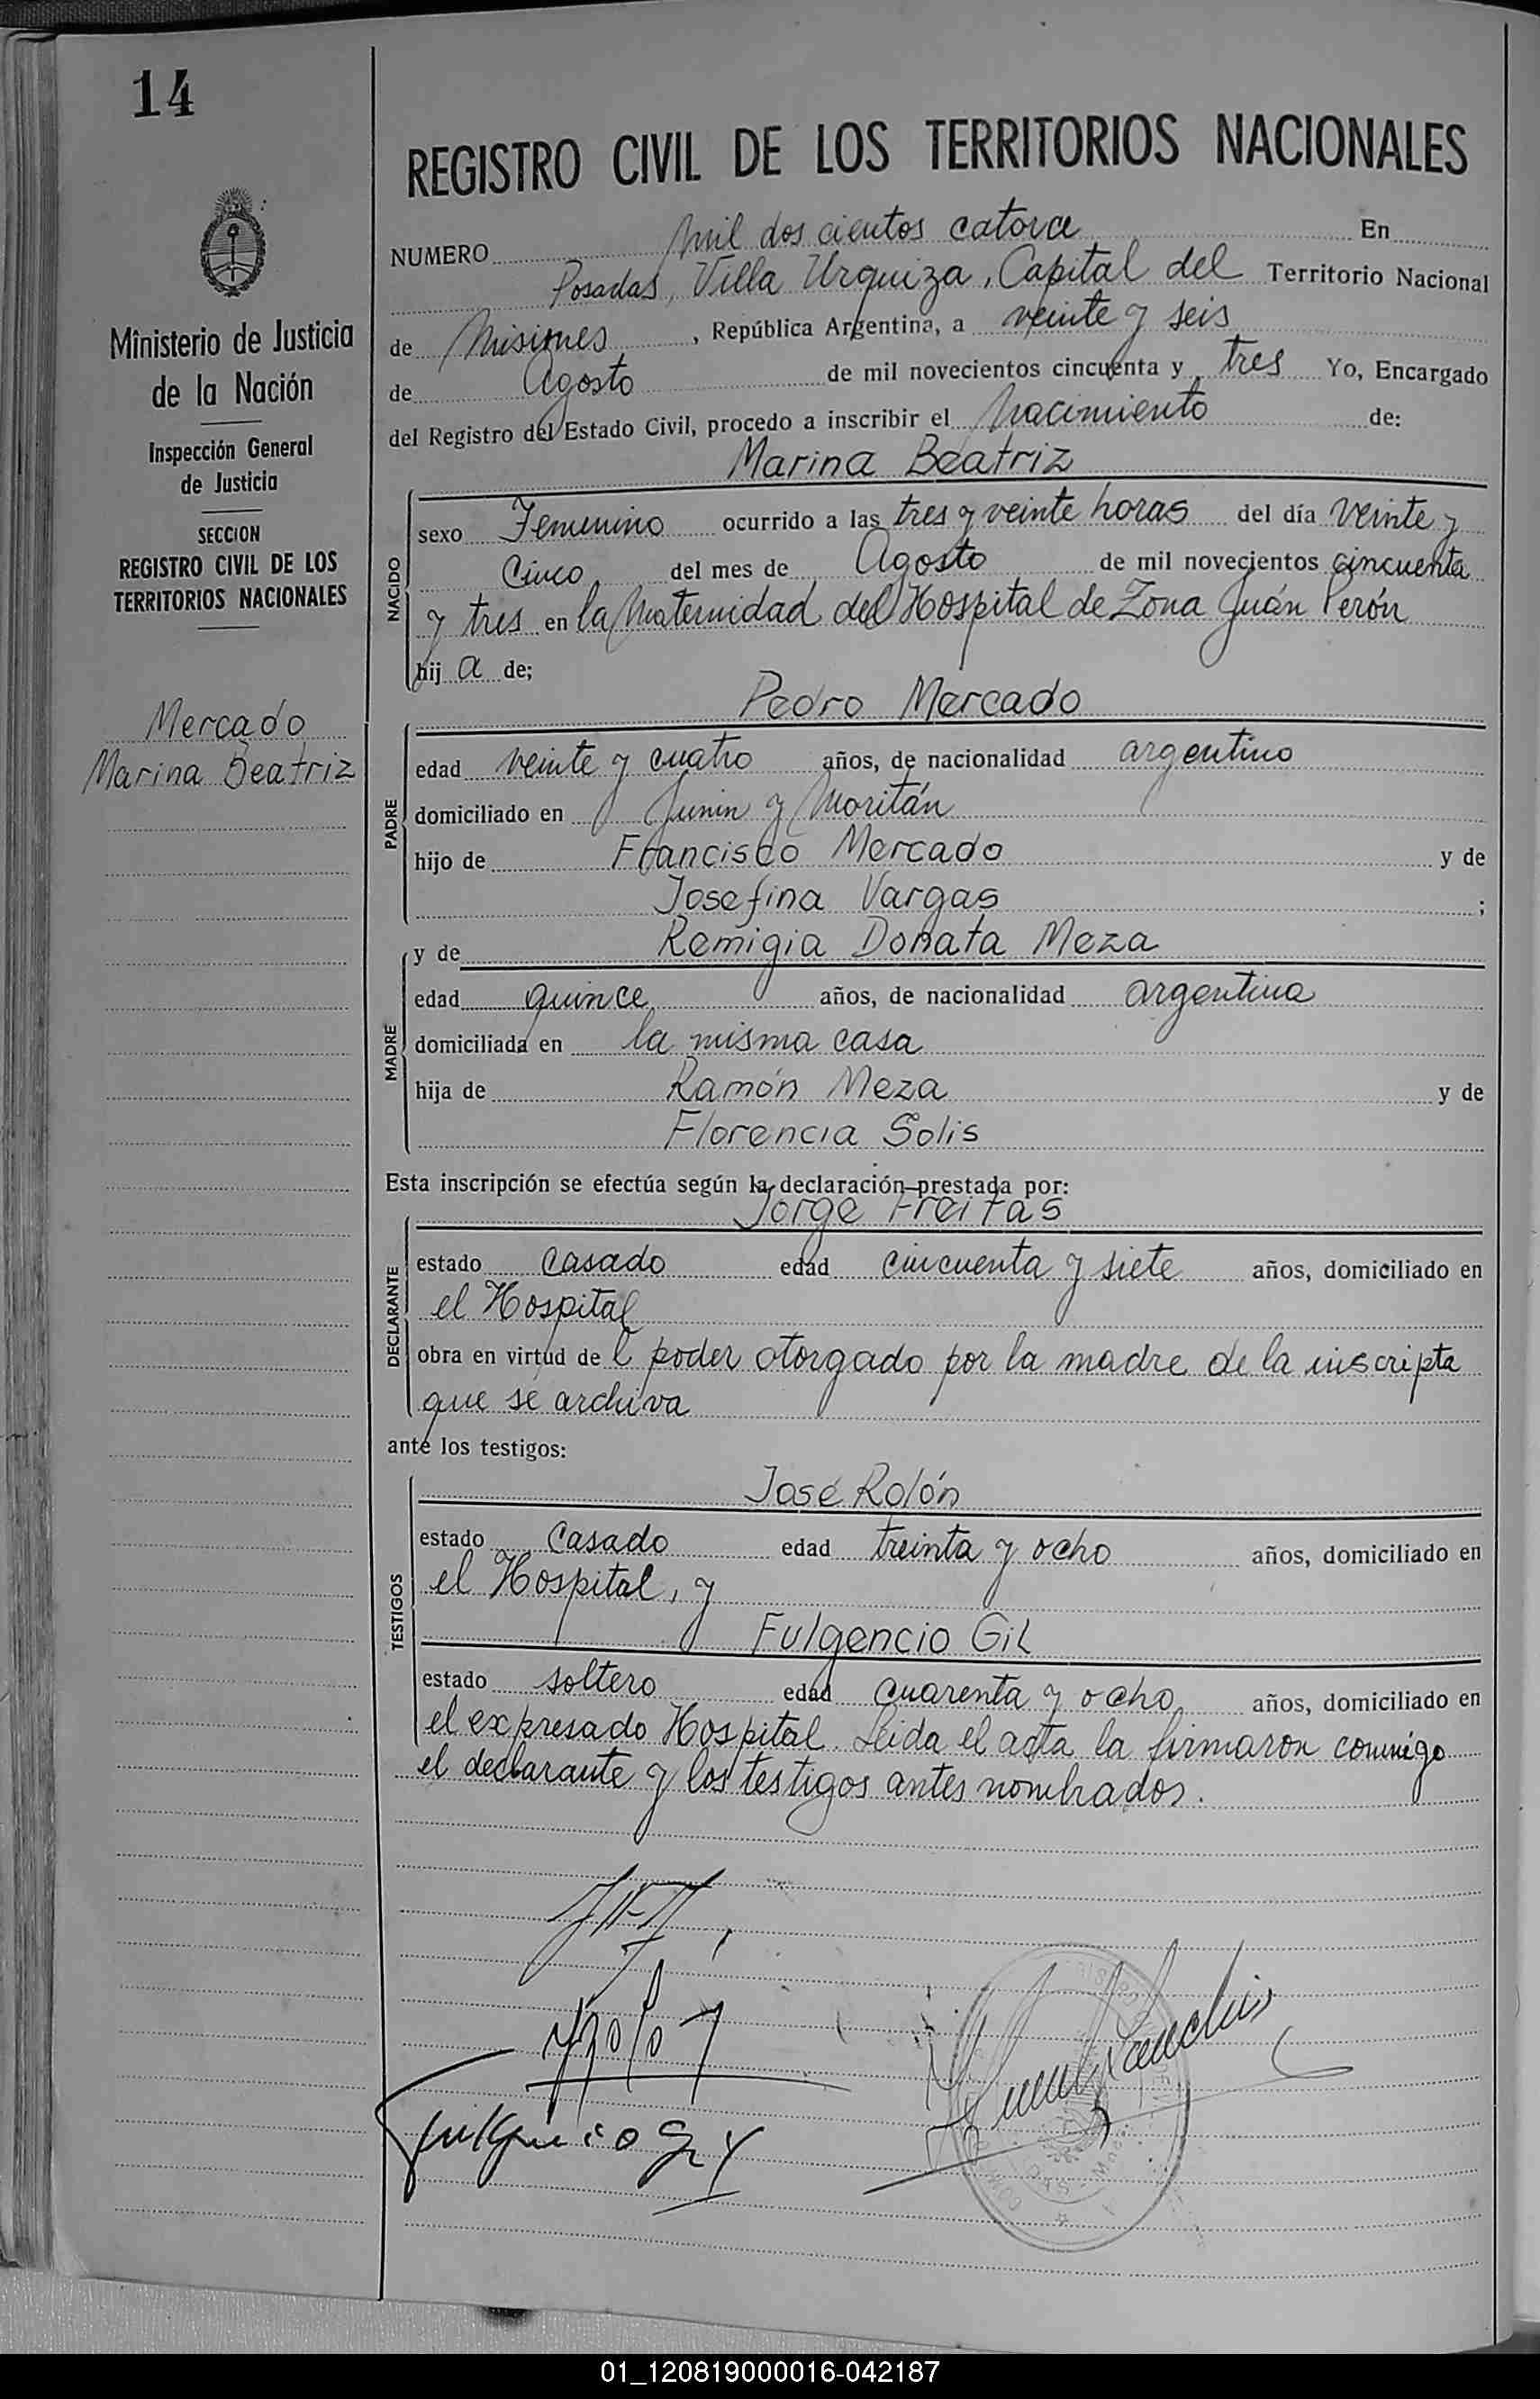 14
REGISTRO CIVIL DE LOS TERRITORIOS NACIONALES
NUMERO mil dos cientos catorce En
Posadas, Villa Urquiza, Capital del Territorio Nacional
de Misiones, República Argentina, a veinte y seis
de Agosto de mil novecientos cincuenta y tres Yo, Encargado
del Registro del Estado Civil, procedo a inscribir el nacimiento de:
Marina Beatriz
Ministerio de Justicia
de la Nación
Inspección General
de Justicia
SECCION
REGISTRO CIVIL DE LOS
TERRITORIOS NACIONALES
Mercado
Marina Beatriz
NACIDO
sexo Femenino ocurrido a las tres y veinte horas del día veinte y
cinco del mes de Agosto de mil novecientos cincuenta
y tres en la Maternidad del Hospital de Zona Juán Perón
hij a de;
Pedro Mercado
PADRE
edad veinte y cuatro años, de nacionalidad argentino
domiciliado en Junin y Moritán
hijo de Francisco Mercado y de
Josefina Vargas ;
y de Remigia Donata Meza
MADRE
edad quince años, de nacionalidad argentina
domiciliada en la misma casa
hija de Ramón Meza y de
Florencia Solis
Esta inscripción se efectúa según la declaración prestada por:
Jorge Freitas
DECLARANTE
estado casado edad cincuenta y siete años, domiciliado en
el Hospital
obra en virtud de l poder otorgado por la madre de la inscripta
que se archiva
ante los testigos:
José Rolón
TESTIGOS
estado casado edad treinta y ocho años, domiciliado en
el Hospital, y
Fulgencio Gil
estado soltero edad cuarenta y ocho años, domiciliado en
el expresado Hospital. Leida el acta la firmaron conmigo
el declarante y los testigos antes nombrados.
01_120819000016-042187